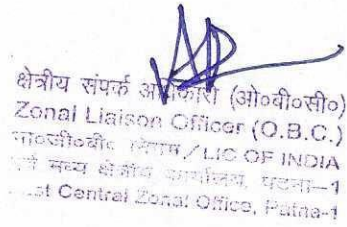 क्षेत्रीय संपर्क अधिकारी (ओ०बी०सी०)
Zonal Liaison Officer (O.B.C.)
भा०जी०बी० निगम/LIC OF INDIA
मध्य क्षेत्रीय कार्यालय, पटना-1
Central Zonal Office, Patna-1